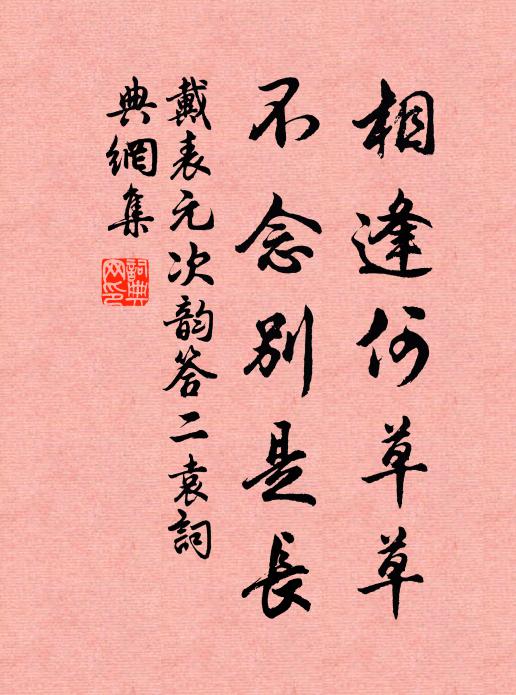 相逢何草草
不念别是長
戴表元次韵答二袁詞
典網集
詞典
网印